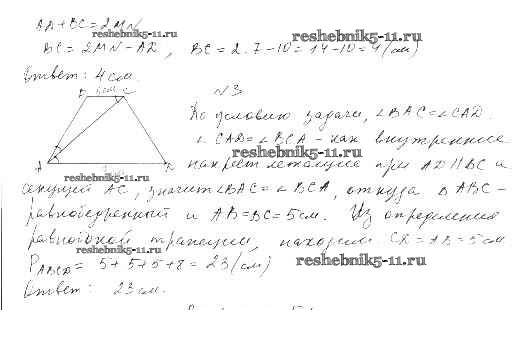 AD+BC=2MN
BC = 2MN-AD, BC = 2·7-10=14-10=4(см)
Ответ: 4 см.
N3
По условию задачи, ∠BAC=∠CAD.
∠CAD=∠BCA - как внутренние
накрест лежащие при AD∥BC и
секущей AC, значит ∠BAC=∠BCA, откуда ΔABC-
равнобедренный и AB=BC=5см. Из определения
равнобокой трапеции, находим CD=AB=5см.
P ABCD = 5+5+5+8=23(см)
Ответ: 23 см.
B C
A D
reshebnik5-11.ru
reshebnik5-11.ru
reshebnik5-11.ru
reshebnik5-11.ru
reshebnik5-11.ru
reshebnik5-11.ru